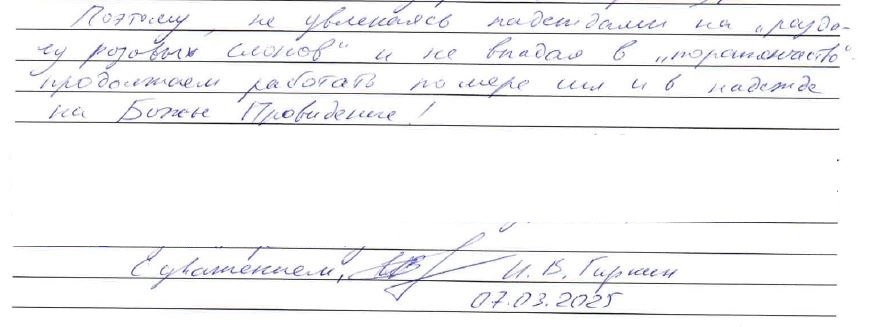 Поэтому, не увлекаясь надеждами на „разда-
чу розовых слонов" и не впадая в „пораженчество"
продолжаем работать по мере сил и в надежде
на Божье Провидение!
С уважением, И. В. Гиркин
07.03.2025